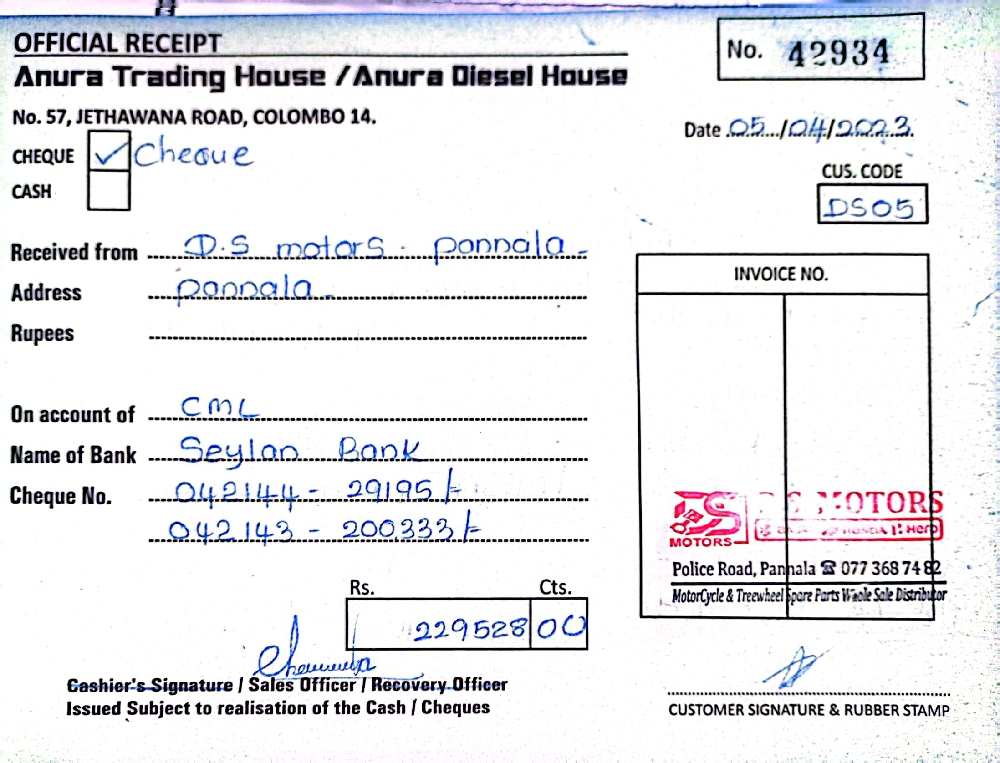 OFFICIAL RECEIPT
Anura Trading House / Anura Diesel House
No. 57, JETHAWANA ROAD, COLOMBO 14.
No. 42934
Date 05/04/2023
CHEQUE ✓ Cheque
CASH
CUS. CODE
DS05
Received from D.S motors - pannala -
Address pannala -
Rupees
INVOICE NO.
On account of CML
Name of Bank Seylan Bank
Cheque No. 042144 - 29195/-
042143 - 200333/-
DS MOTORS
MOTORS HONDA Hero
Police Road, Pannala ☎ 077 368 74 82
MotorCycle & Treewheel Spare Parts Whole Sale Distributor
Rs. Cts.
229528 00
Cashier's Signature / Sales Officer / Recovery Officer
Issued Subject to realisation of the Cash / Cheques
CUSTOMER SIGNATURE & RUBBER STAMP